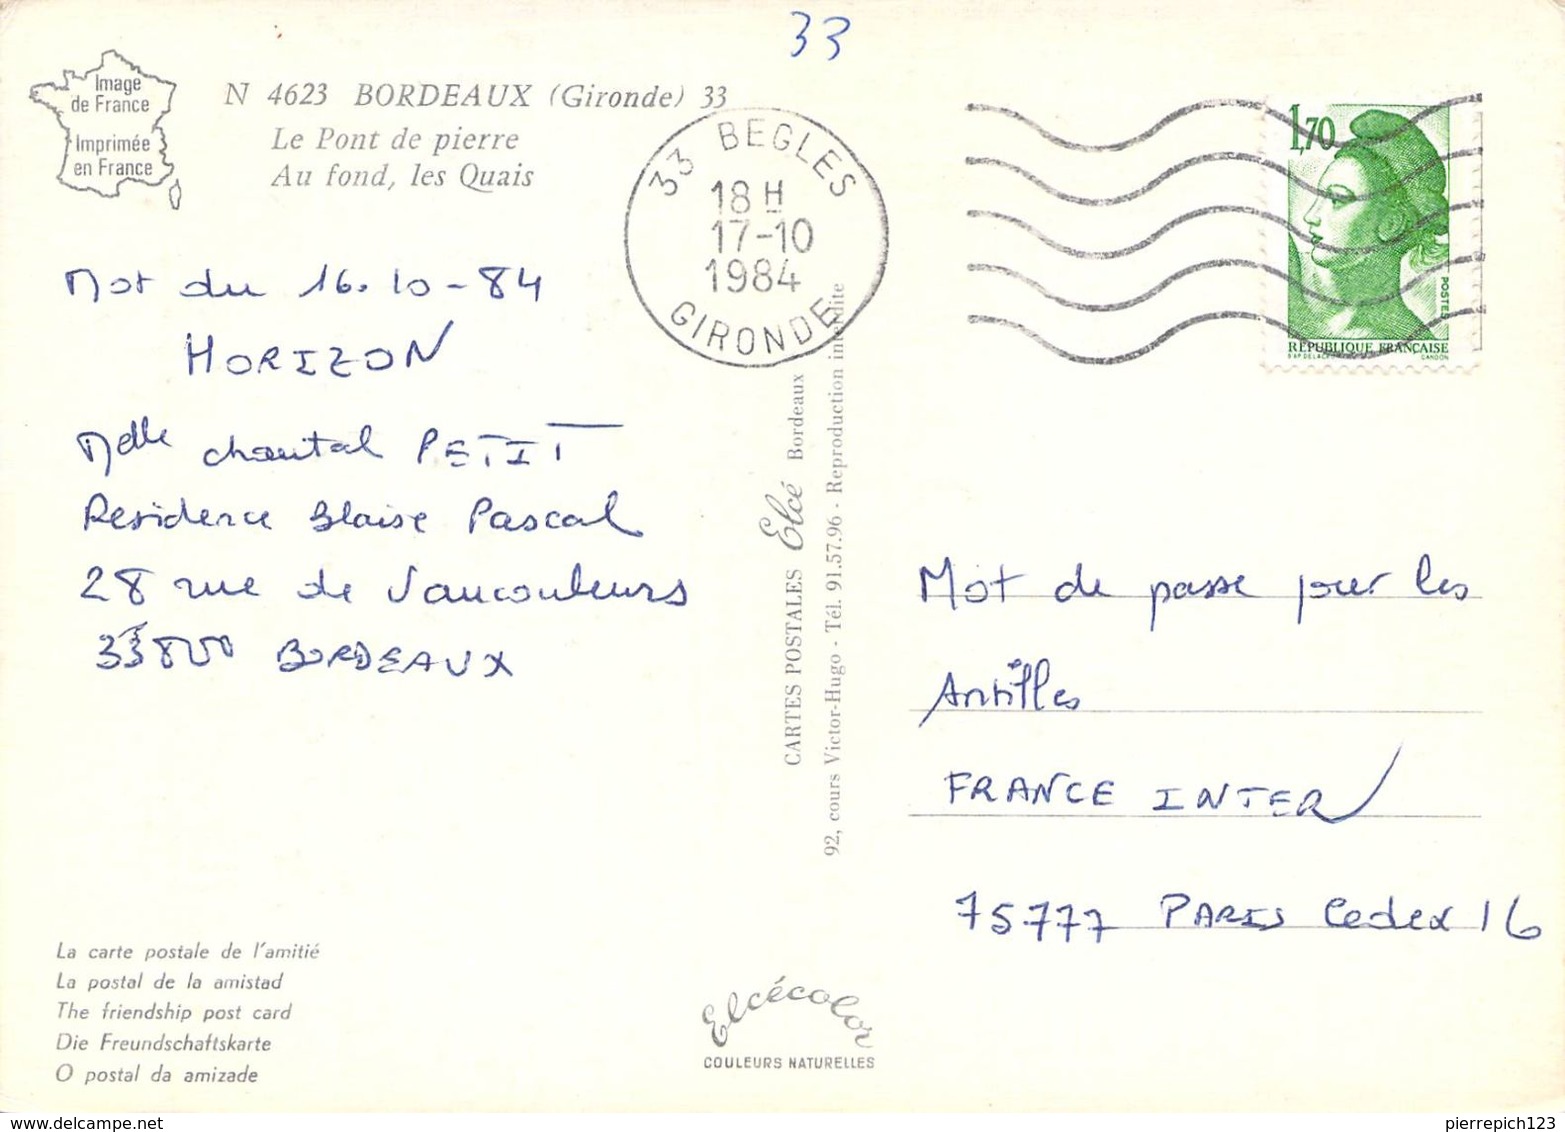 33
Image
de France
Imprimée
en France
N 4623 BORDEAUX (Gironde) 33
Le Pont de pierre
Au fond, les Quais
33 BEGLES
18 H
17-10
1984
GIRONDE
1,70
POSTES
RÉPUBLIQUE FRANÇAISE
Mot du 16.10-84
HORIZON
Melle chantal PETIT
Residence Blaise Pascal
28 rue de Vaucouleurs
33800 BORDEAUX
CARTES POSTALES Elcé Bordeaux
92, cours Victor-Hugo - Tél. 91.57.96 - Reproduction interdite
Mot de passe pour les
Antilles
FRANCE INTER
75777 PARIS Cedex 16
La carte postale de l'amitié
La postal de la amistad
The friendship post card
Die Freundschaftskarte
O postal da amizade
Elcécolor
COULEURS NATURELLES
pierrepich123